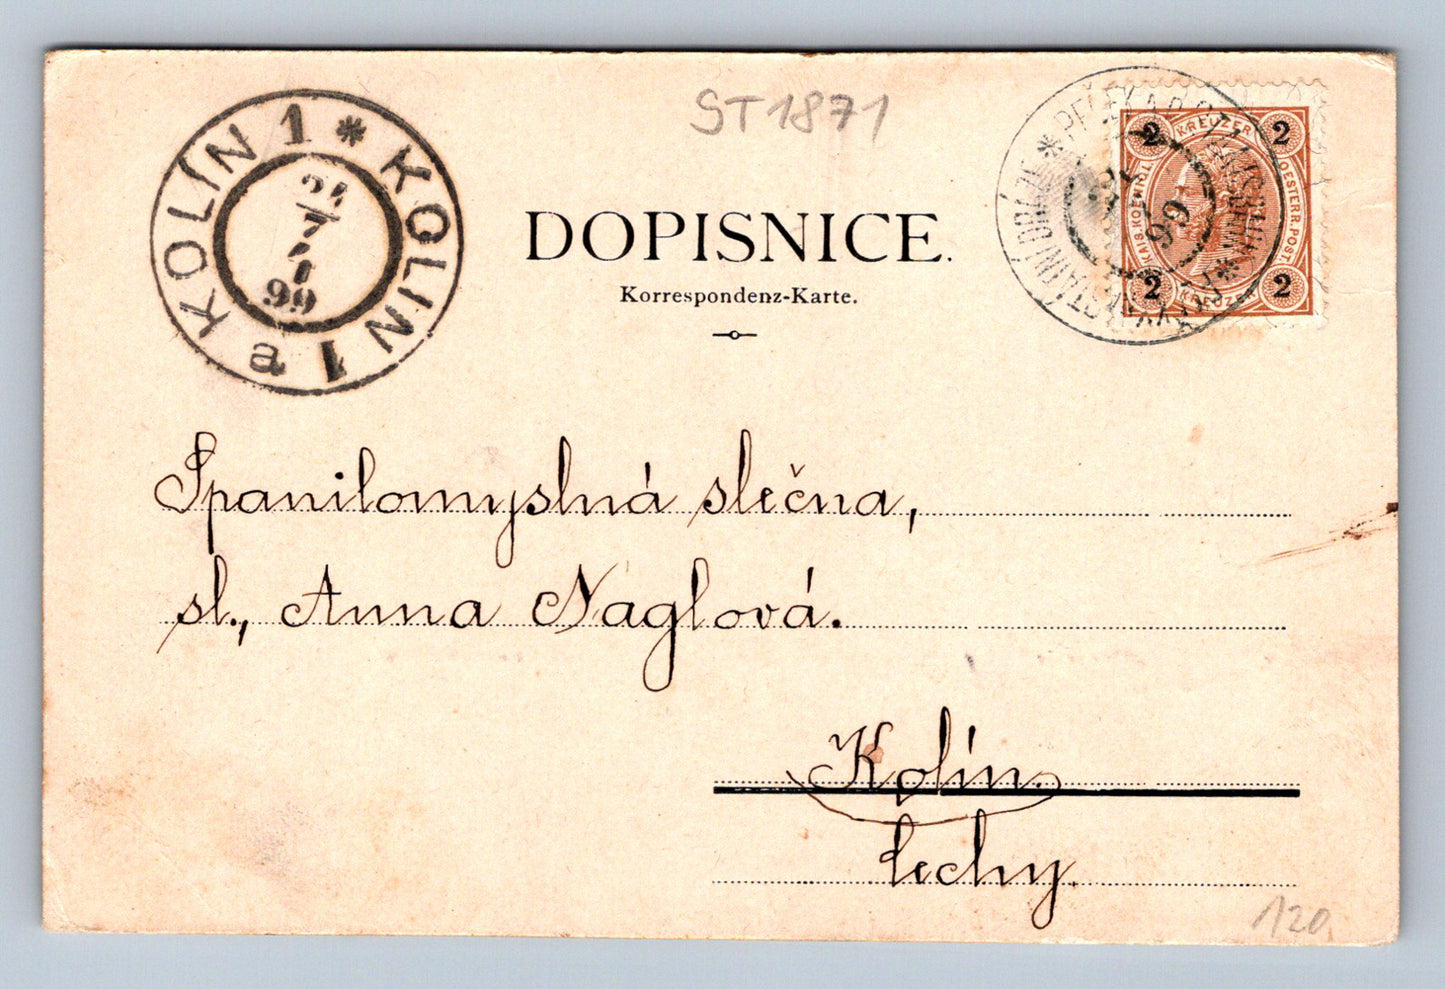 ST1871
KOLÍN 1 * KOLIN 1 a
99
DOPISNICE.
Korrespondenz-Karte.
2 KREUZER 2
KAIS. KOENIGL.
OESTERR. POST
2 KREUZER 2
99
Spanilomyslná slečna,
sl., Anna Naglová.
Kolín.
Čechy.
120